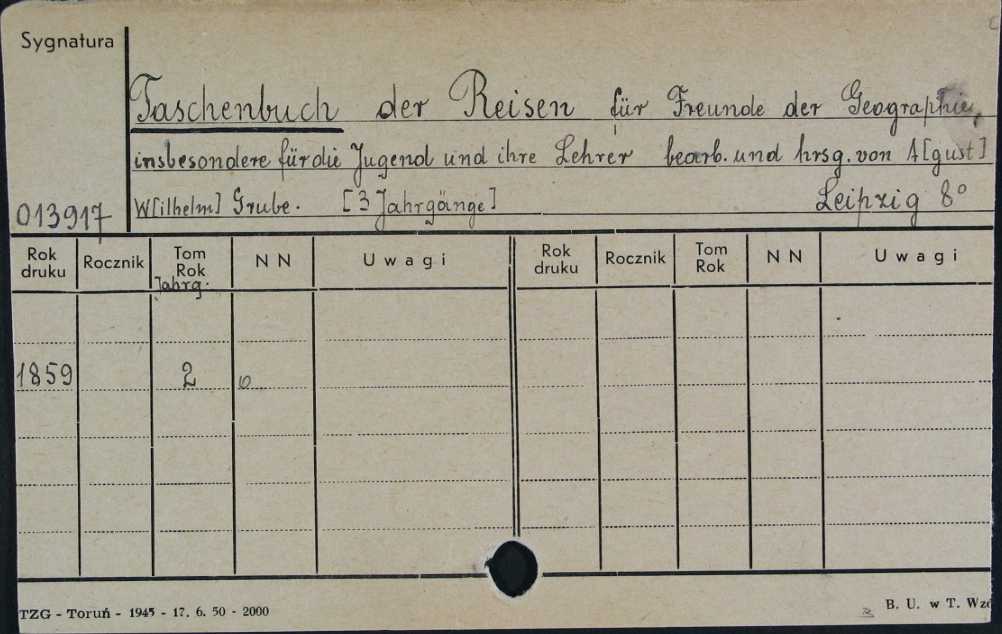 Sygnatura
Taschenbuch der Reisen für Freunde der Geographie,
insbesondere für die Jugend und ihre Lehrer bearb. und hrsg. von A[gust]
W[ilhelm] Grube. [3 Jahrgänge] Leipzig 8°
013917
Rok druku Rocznik Tom Rok NN Uwagi Rok druku Rocznik Tom Rok NN Uwagi
Jahrg.
1859 2
TZG - Toruń - 1945 - 17. 6. 50 - 2000
B. U. w T. Wzó